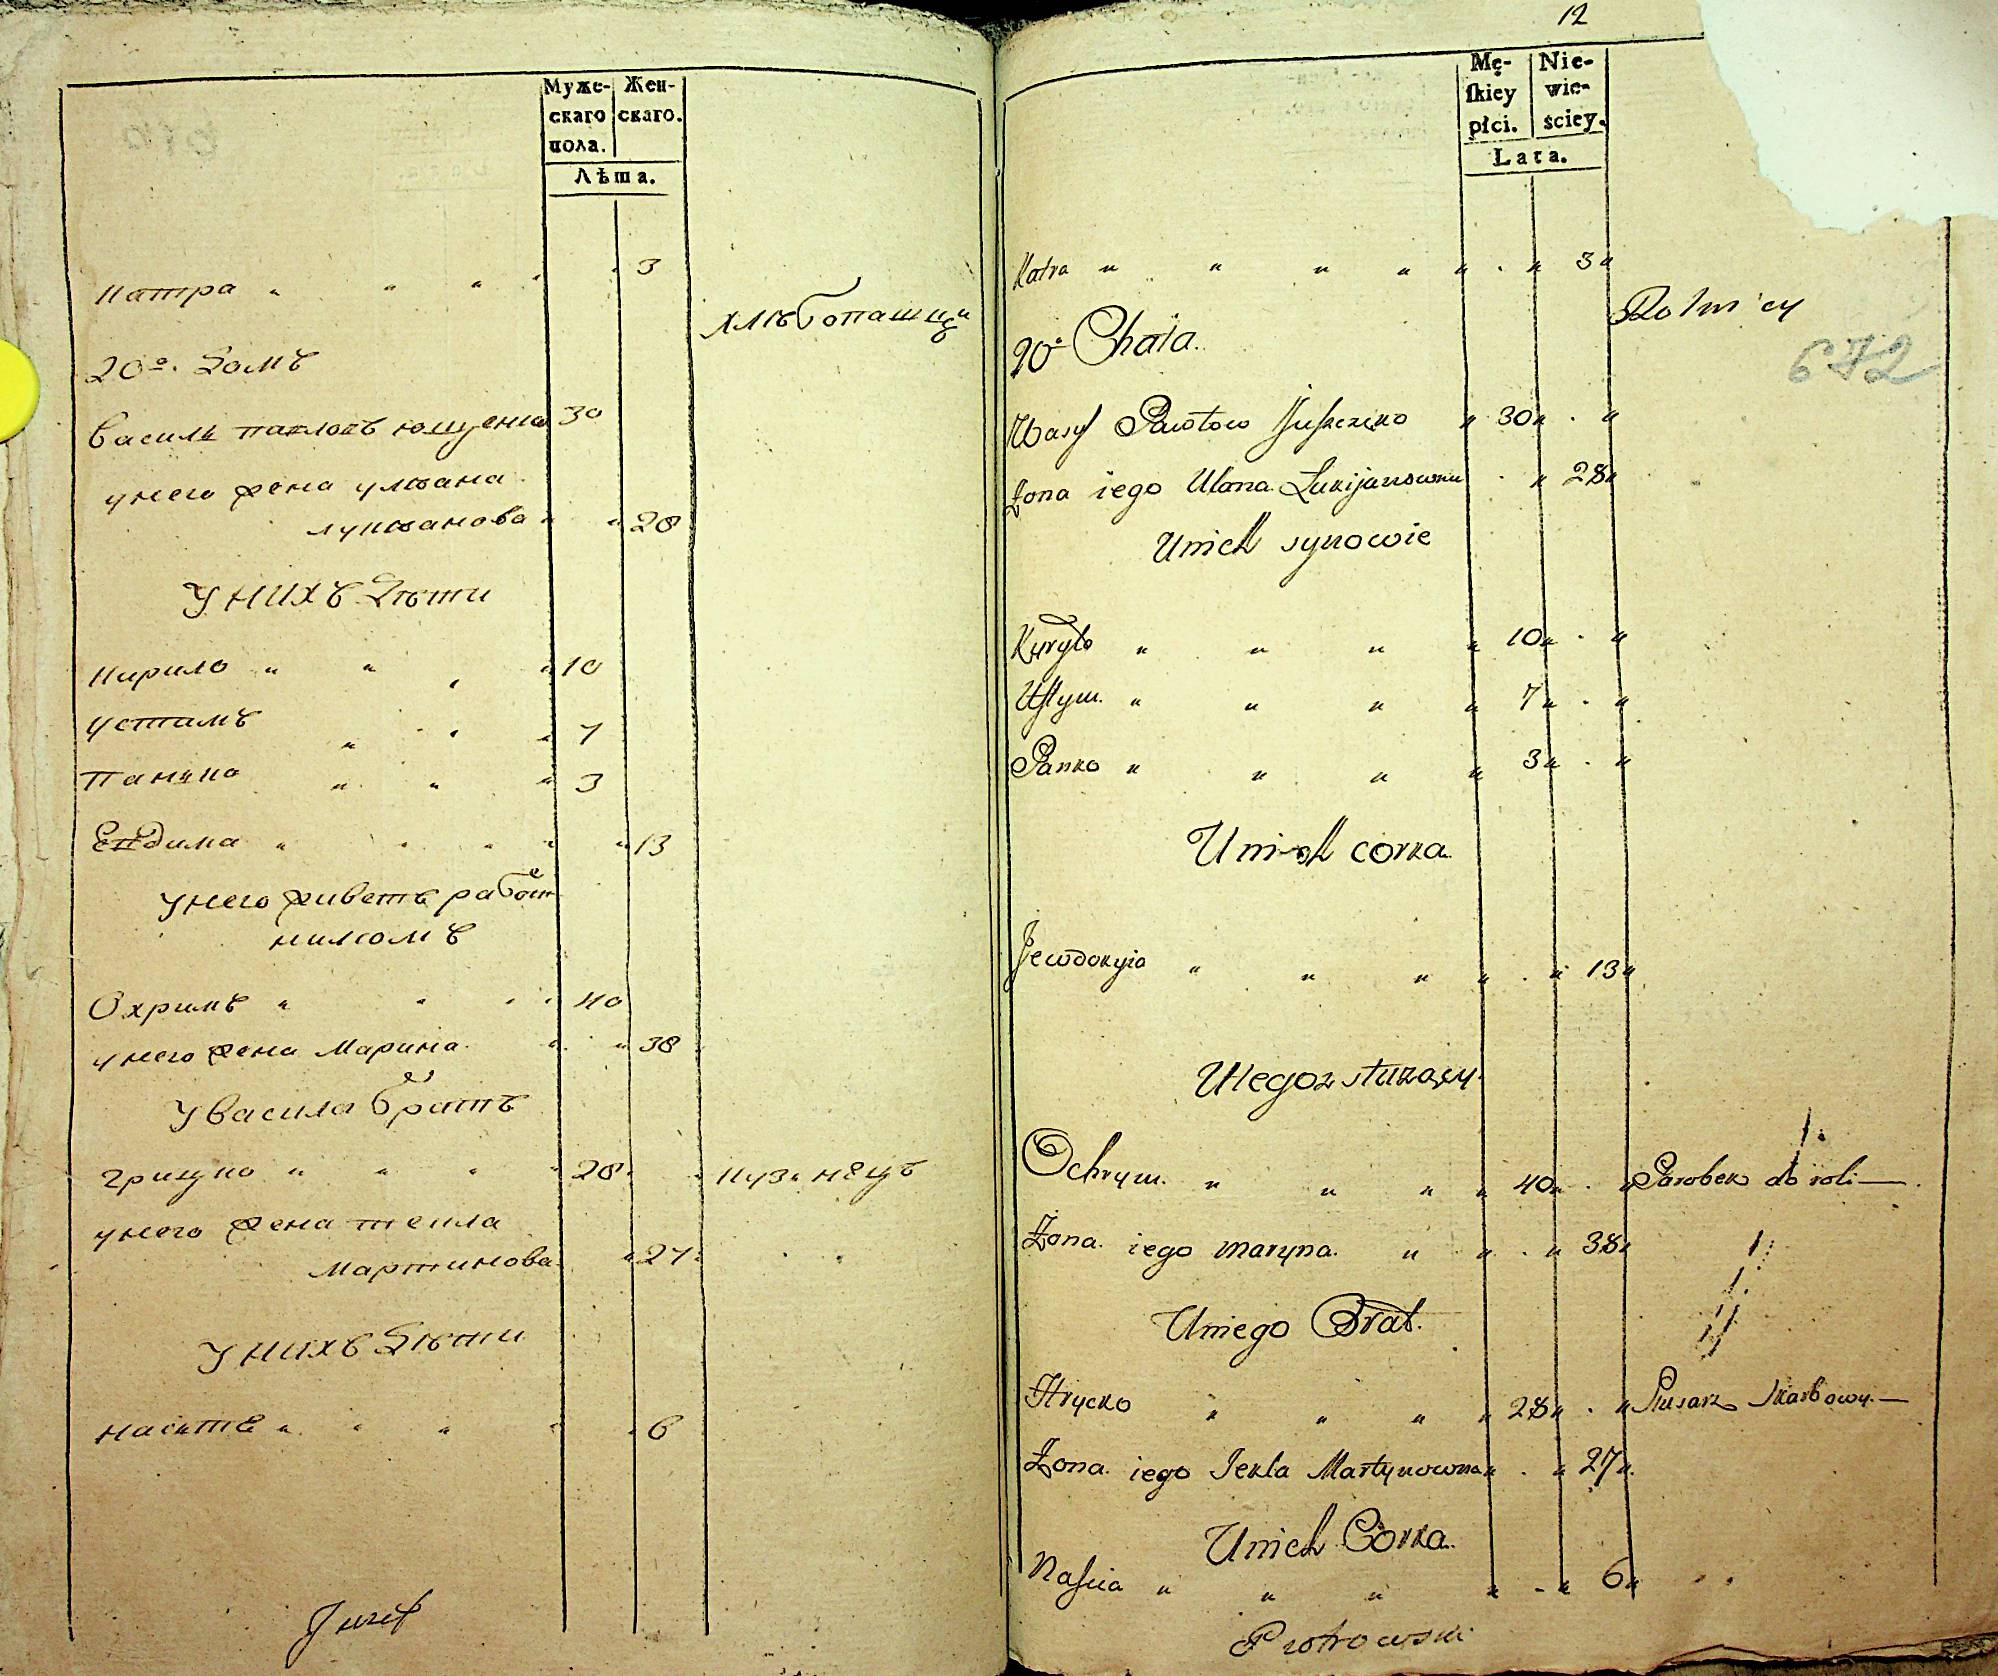 Муже-
скаго
пола.
Жен-
скаго.
Лѣта.
Катра " " " " 3
хлѣбопашцы
20º. Домъ
Василь Павловъ Ющенко 30
у него жена Ульяна
Лукьянова " " 28
у нихъ дѣти
Кирило " " " " 10
Устимъ " " " 7
Панько " " " 3
Евдима " " " " " 13
у него живетъ работ
никомъ
Охримъ " " " 40
у него жена Марина " " 38
у Василя братъ
Грицко " " " " 28 Кузнецъ
у него жена Текла
Мартинова " 27
у нихъ дѣти
Настя " " " " " 6
Jozef
12
Mę-
skiey
płci.
Nie-
wie-
ściey.
Lata.
Katra " " " " " . " 3 "
Rolnicy
20º Chata.
672
Wasyl Pawłow Juszczęko " 30 " . "
Żona iego Ulana Łukijanowna . " 28 "
U nich synowie
Kyryło " " " " 10 " . "
Ustym. " " " " 7 " . "
Panko " " " " 3 " . "
U nich corka
Jewdokyia " " " " . " 13 "
U tegoz służący
Ochrym. " " " " 40 " . " Parobek do roli —
Żona iego Maryna. " " . " 38 "
U niego Brat.
Hrycko " " " " 28 " . " Slusarz Skarbowy. —
Żona iego Tekla Martynowna " . " 27 "
U nich Córka
Naścia " " " " . " 6 "
Piotrowski